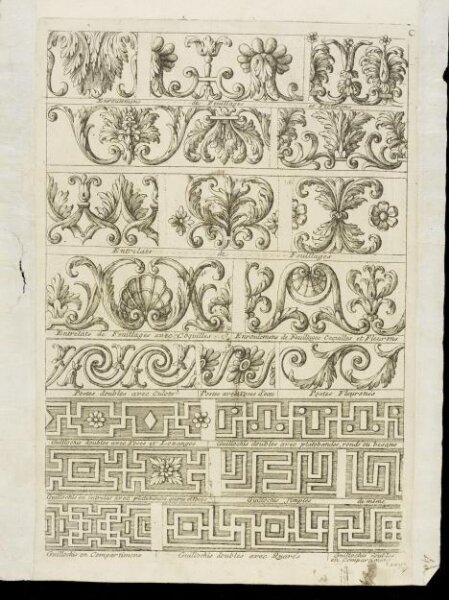 C
Enroulemens de Feuillages
Entrelats de Feuillages
Entrelats de Feuillages avec Coquilles
Enroulemens de Feuillages Coquilles et Fleurons
Postes doubles avec Culots
Postes avec Roses d'eau
Postes Fleuronés
Guillochis doubles avec Roses et Lozanges
Guillochis doubles avec platebandes, ronds ou besans
Guillochis simples
de mesme
Guillochis en Compartimens
Guillochis doubles avec Quarés
Guillochis doubles
en Compartimens